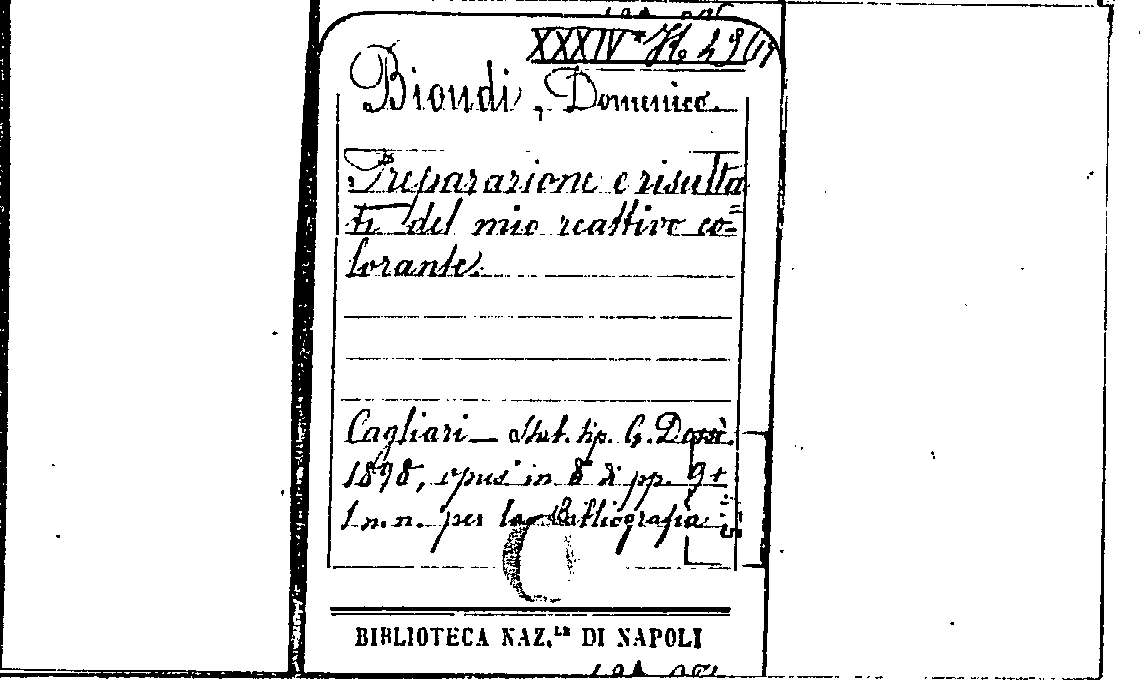 XXXIV* H 29
Biondi, Domenico.
Preparazione e risulta
ti del mio reattivo co=
lorante.
Cagliari — Stab. tip. G. Dessì.
1898, opus in 8° di pp. 9 +
1 n. n. per la Bibliografia
BIBLIOTECA NAZ.LE DI NAPOLI